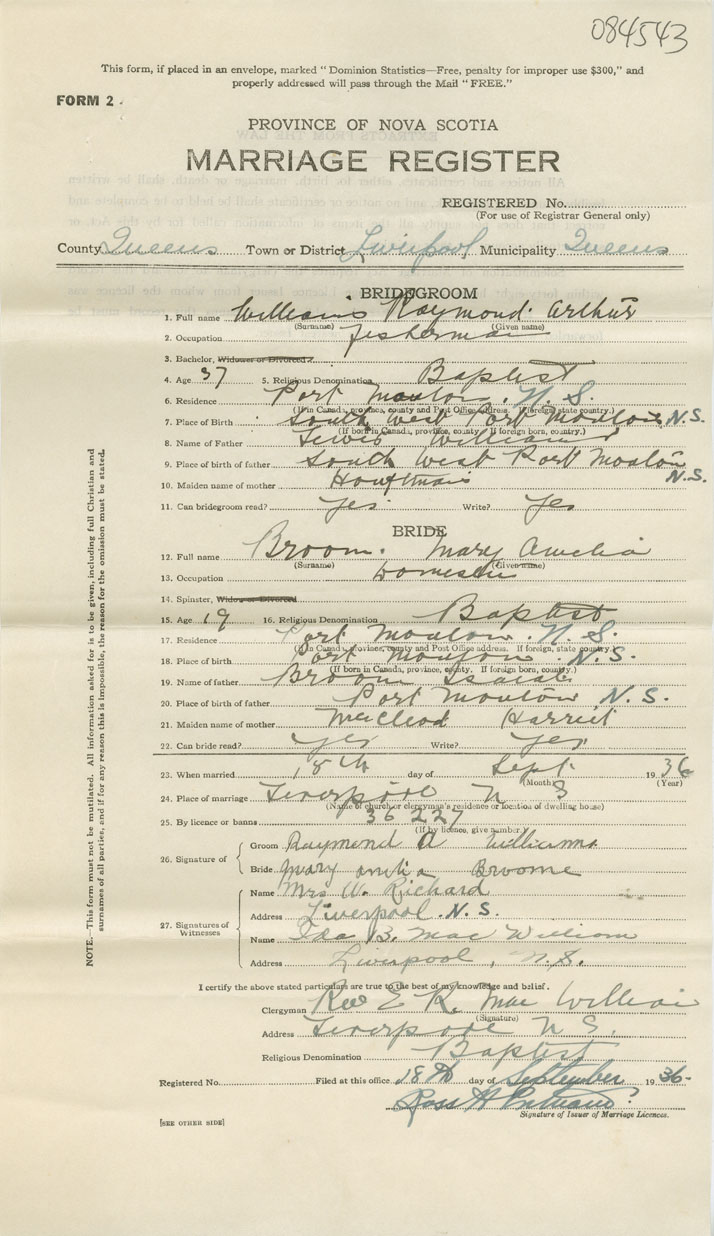 084543
This form, if placed in an envelope, marked "Dominion Statistics—Free, penalty for improper use $300," and
properly addressed will pass through the Mail "FREE."
FORM 2
PROVINCE OF NOVA SCOTIA
MARRIAGE REGISTER
REGISTERED No.
(For use of Registrar General only)
County Queens Town or District Liverpool Municipality Queens
BRIDEGROOM
1. Full name Williams Raymond Arthur
(Surname) (Given name)
2. Occupation fisherman
3. Bachelor, Widower or Divorced
4. Age 37 5. Religious Denomination Baptist
6. Residence Port Mouton, N. S.
(If in Canada, province, county and Post Office address. If foreign, state country.)
7. Place of Birth South West Port Mouton N.S.
(If born in Canada, province, county. If foreign born, country.)
8. Name of Father Lewis Williams
9. Place of birth of father South West Port Mouton
N.S.
10. Maiden name of mother
11. Can bridegroom read? Yes Write? Yes
BRIDE
12. Full name Broom. Mary Amelia
(Surname) (Given name)
13. Occupation Domestic
14. Spinster, Widow or Divorced
15. Age 19 16. Religious Denomination Baptist
17. Residence Port Mouton. N. S.
(In Canada, province, county and Post Office address. If foreign, state country.)
18. Place of birth Port Mouton N.S.
(If born in Canada, province, county. If foreign born, country.)
19. Name of father Broom Isaiah
20. Place of birth of father Port Mouton N.S.
21. Maiden name of mother MacLeod Harriet
22. Can bride read? Yes Write? Yes
23. When married 18th day of Sept 1936
(Month) (Year)
24. Place of marriage Liverpool N S
(Name of church or clergyman's residence or location of dwelling house)
25. By licence or banns 36227
(If by licence, give number)
26. Signature of
Groom Raymond A Williams
Bride Mary Amelia Broome
27. Signatures of Witnesses
Name Mrs W. Richard
Address Liverpool N.S.
Name Ida B. Mac William
Address Liverpool, N.S.
I certify the above stated particulars are true to the best of my knowledge and belief.
Clergyman Rev E K. Mac William
(Signature)
Address Liverpool N S.
Religious Denomination Baptist
Registered No. Filed at this office 18th day of September 1936
Ross H
Signature of Issuer of Marriage Licences.
[SEE OTHER SIDE]
NOTE.—This form must not be mutilated. All information asked for is to be given, including full Christian and
surnames of all parties, and if for any reason this is impossible, the reason for the omission must be stated.